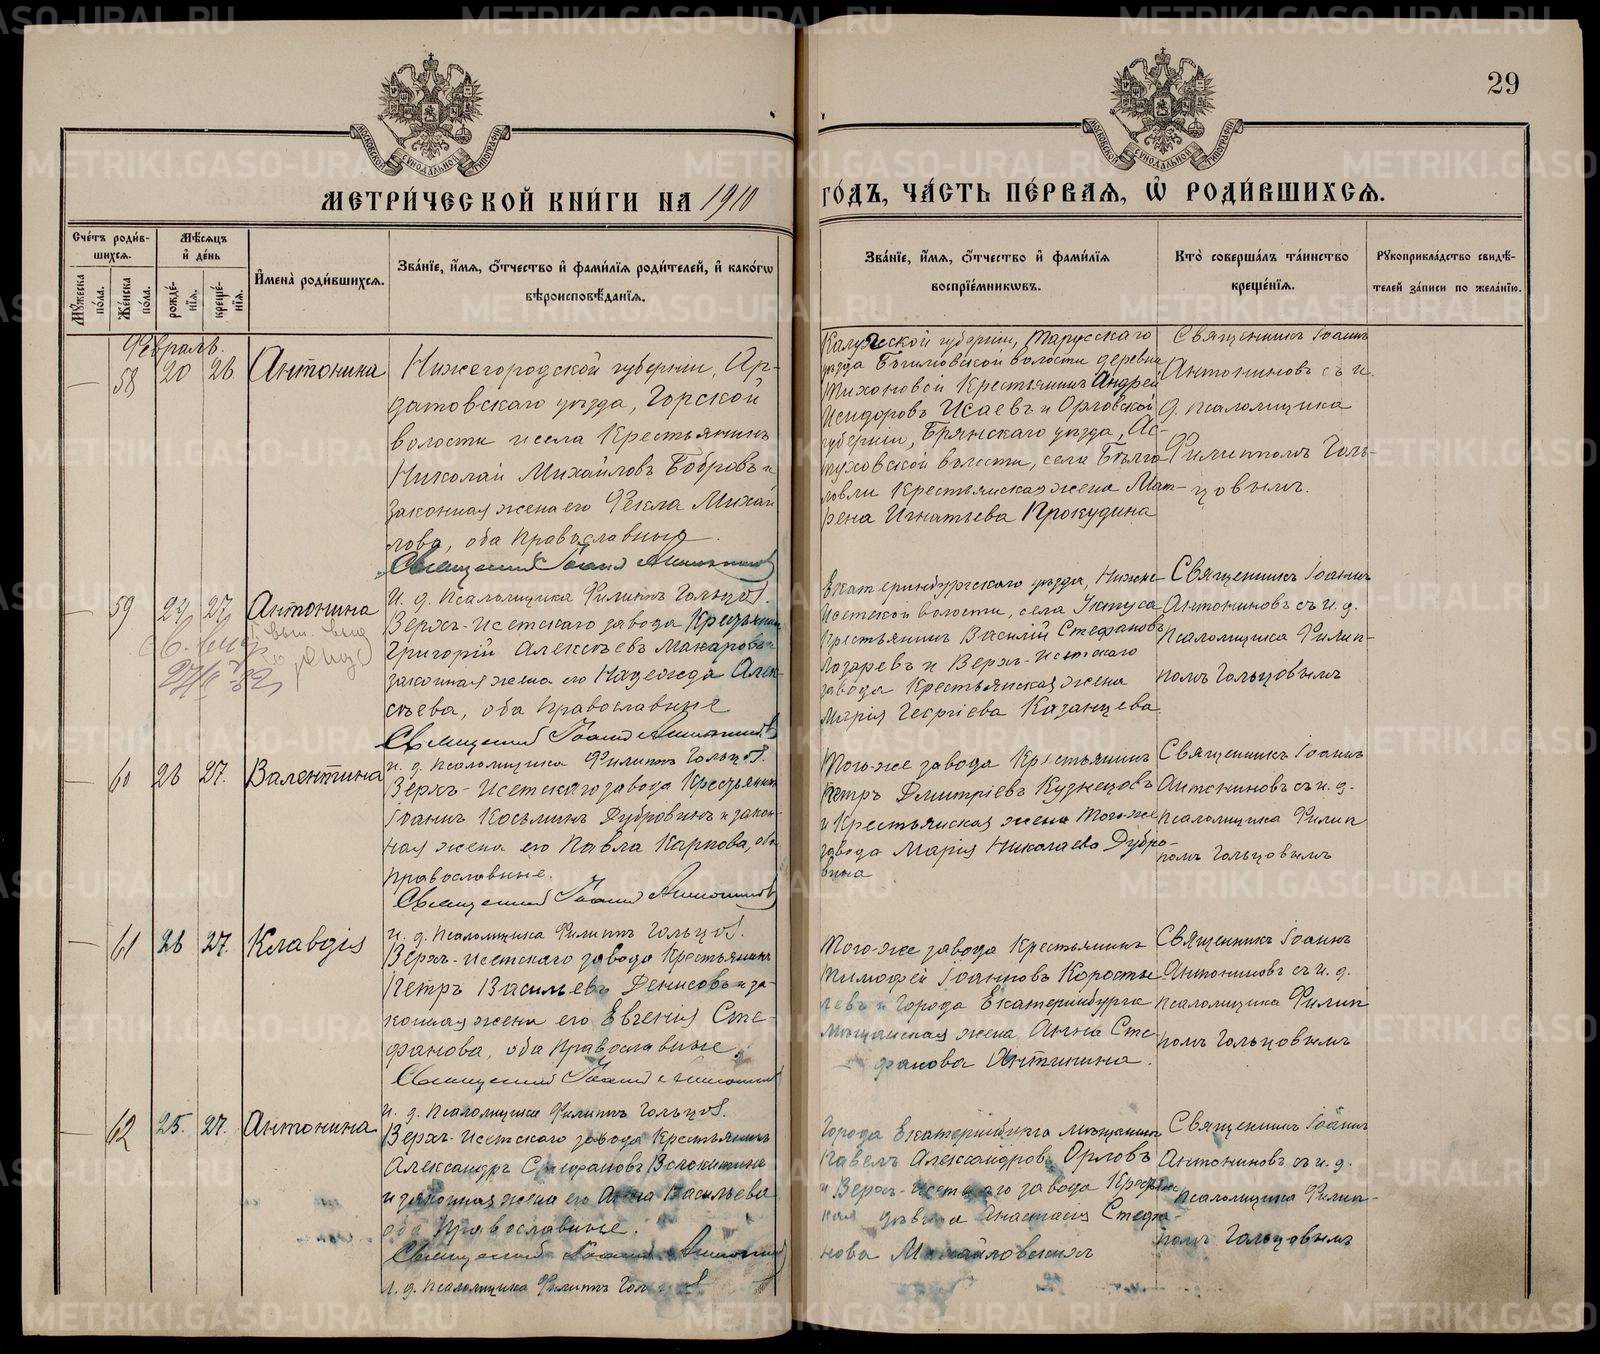 29
МЕТРИ́ЧЕСКОЙ КНИ́ГИ НА 1910
ГО́ДЪ, ЧА́СТЬ ПЕ́РВАЯ, Ѡ҆ РОДИ́ВШИХСѦ.
Сче́тъ роди́в-
шихсѧ.
Мѹ́жеска по́ла.
Же́нска по́ла.
Мѣ́сѧцъ и҆ де́нь
рожде́-нїѧ.
креще́-нїѧ.
И҆мена̀ роди́вшихсѧ.
Зва́нїе, и҆́мѧ, ѻ҆́тчество и҆ фами́лїѧ роди́телей, и҆ како́гѡ
вѣроисповѣ́данїѧ.
Зва́нїе, и҆́мѧ, ѻ҆́тчество и҆ фами́лїѧ
воспрїе́мникѡвъ.
Кто̀ соверша́лъ та́инство
креще́нїѧ.
Рѹкоприкла́дство свидѣ́-
телей за́писи по жела́нїю.
Февраль.
58 20 26 Антонина
Нижегородской губерніи, Ар-
датовскаго уѣзда, Горской
волости и села Крестьянинъ
Николай Михайловъ Бобровъ и
законная жена его Фекла Михай
лова, оба Православныя.
Священникъ Іоаннъ Антониновъ
И. д. Псаломщика Филиппъ Гольцов.
Калужской губерніи, Тарусскаго
уѣзда волости деревни
Тихоновой Крестьянинъ Андрей
Исидоровъ Исаевъ и Орловской
губерніи, Брянскаго уѣзда,
волости, села
Крестьянская жена Мат-
рена Игнатьева Прокудина
Священникъ Іоаннъ
Антониновъ съ и.
д. псаломщика
Филиппомъ Голь-
цовымъ.
59 24 27. Антонина
Верхъ-Исетскаго завода Крестьянинъ
Григорій Алексѣевъ Макаровъ и
законная жена его Надежда Алек-
сѣева, оба Православные
Священникъ Іоаннъ Антониновъ
и. д. Псаломщика Филиппъ Гольцов.
Екатеринбургскаго уѣзда, Нижне-
Исетской волости, села Уктуса
Крестьянинъ Василій Стефановъ
Лазаревъ и Верхъ-Исетскаго
завода Крестьянская жена
Марія Георгіева Казанцева.
Священникъ Іоаннъ
Антониновъ съ и. д.
псаломщика Филип-
помъ Гольцовымъ
60 26 27. Валентина
Верхъ-Исетскаго завода Крестьянинъ
Іоаннъ Косьминъ Дубровинъ и закон-
ная жена его Павла Карпова, оба
Православные.
Священникъ Іоаннъ Антониновъ
и. д. Псаломщика Филиппъ Гольцов.
Того-же завода Крестьянинъ
Петръ Дмитріевъ Кузнецовъ
и Крестьянская жена того-же
завода Марія Николаева Дубро-
вина
Священникъ Іоаннъ
Антониновъ съ и. д.
псаломщика Филип
помъ Гольцовымъ
61 26 27. Клавдія
Верхъ-Исетскаго завода Крестьянинъ
Петръ Васильевъ Денисовъ и за-
конная жена его Евгенія Сте-
фанова, оба Православные.
Священникъ Іоаннъ Антониновъ
и. д. Псаломщика Филиппъ Гольцов.
Того-же завода Крестьянинъ
Тимофей Іоанновъ Коросты-
левъ и Города Екатеринбурга
мѣщанская жена Анна Сте-
фанова Антипина.
Священникъ Іоаннъ
Антониновъ съ и. д.
псаломщика Филип
помъ Гольцовымъ
62 25. 27. Антонина
Верхъ-Исетскаго завода Крестьянинъ
Александръ Стефановъ Волокитинъ
и законная жена его Анна Васильева
оба Православные.
Священникъ Іоаннъ Антониновъ
и. д. Псаломщика Филиппъ Гольцов
Города Екатеринбурга мѣщанинъ
Павелъ Александровъ Орловъ
и Верхъ-Исетскаго завода Крестьян
ская дѣвица Анастасія Стефа-
нова Михайловскихъ
Священникъ Іоаннъ
Антониновъ съ и. д.
псаломщика Филип-
помъ Гольцовымъ